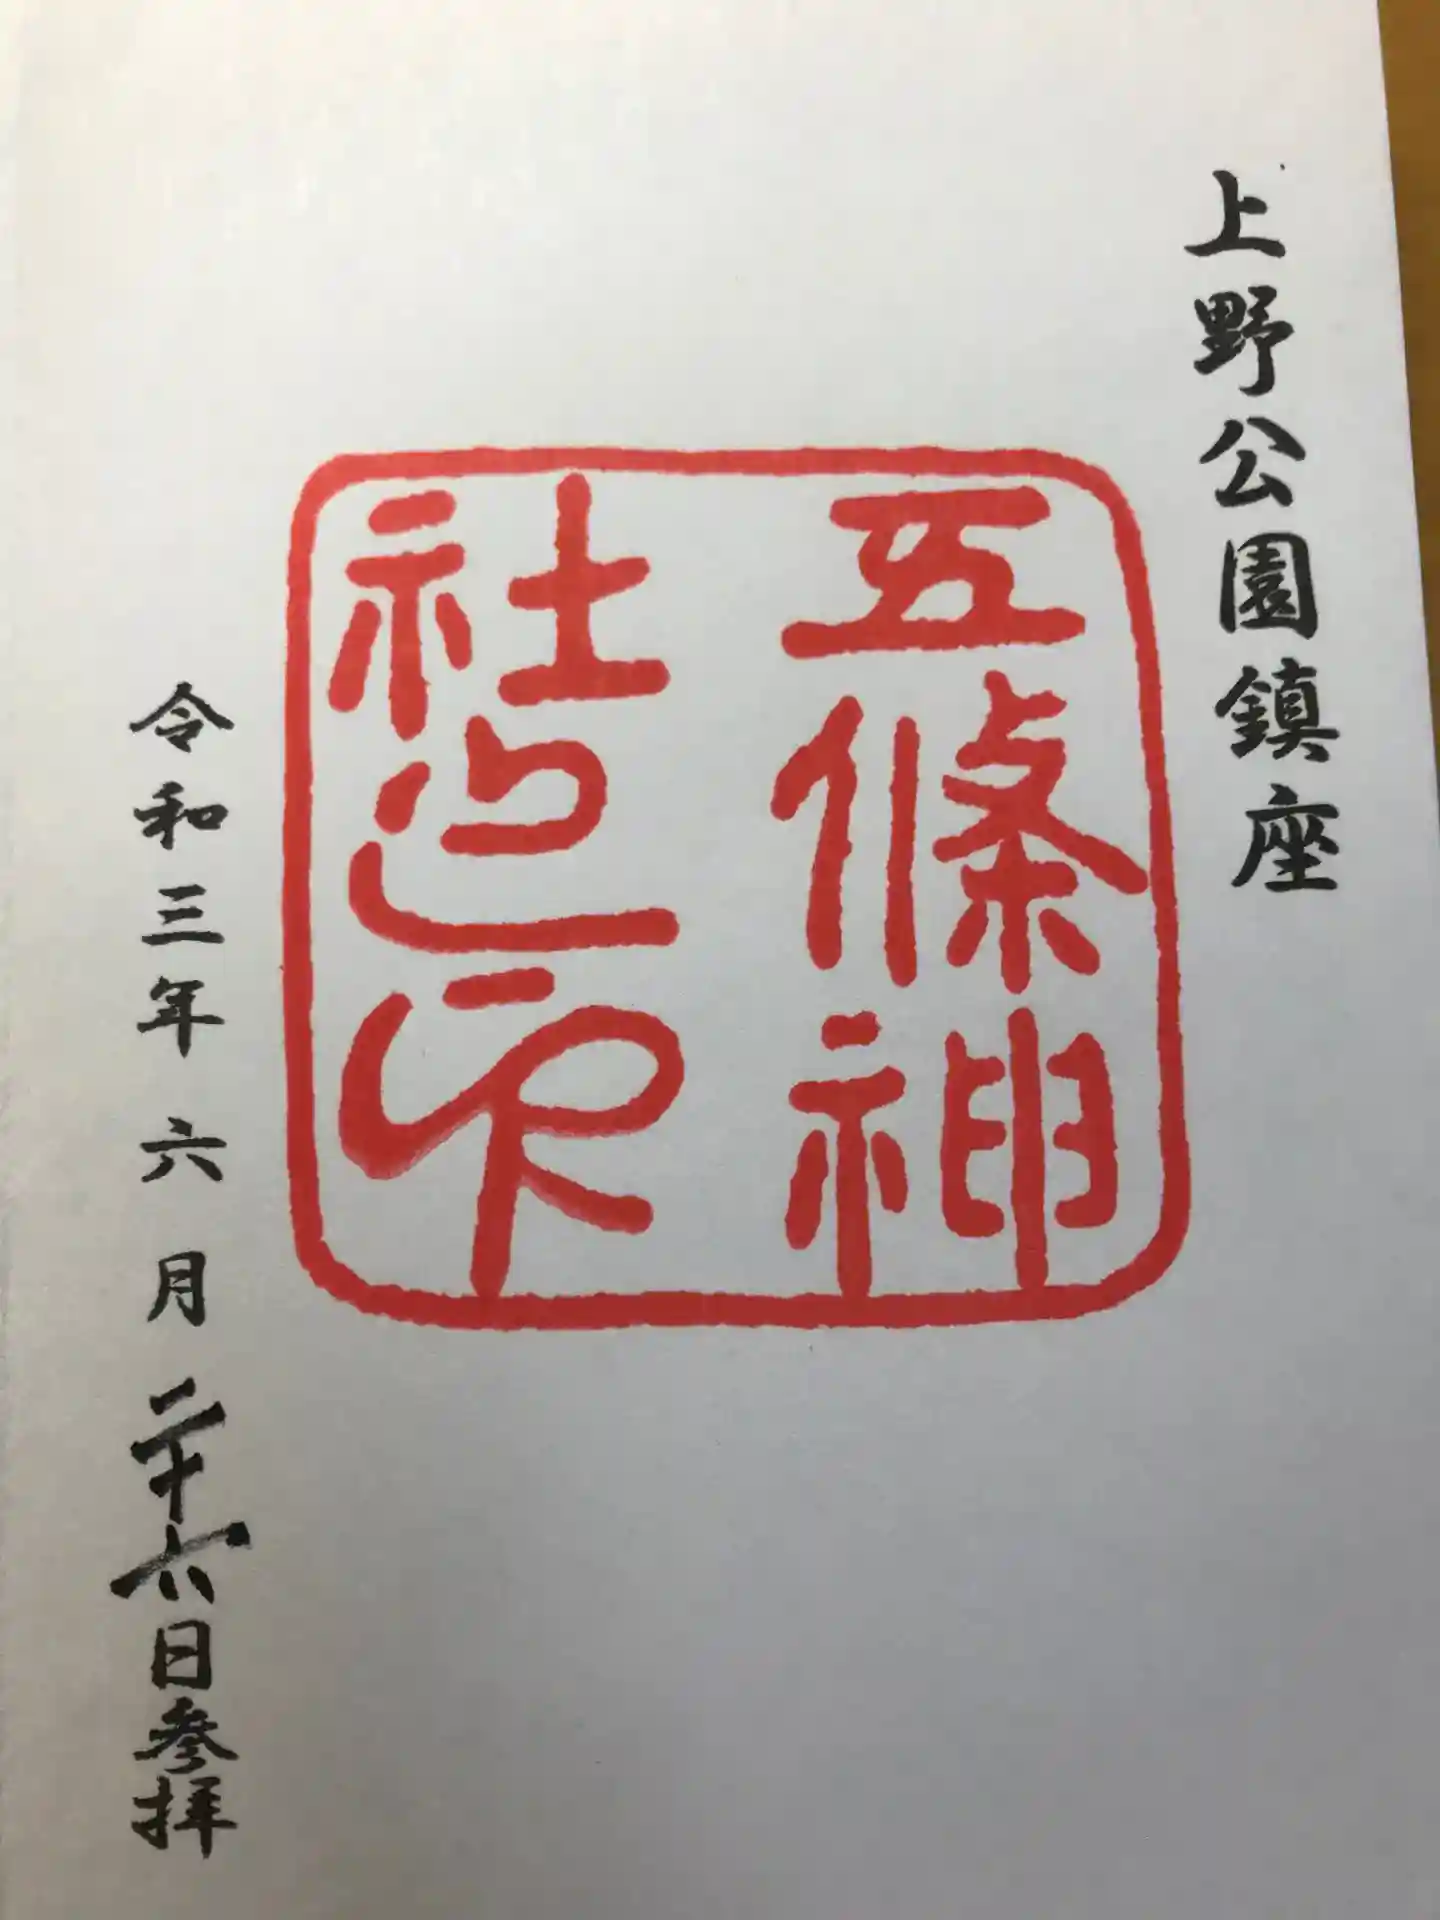 上野公園鎮座
五條神
社
令和三年六月二十六日参拝